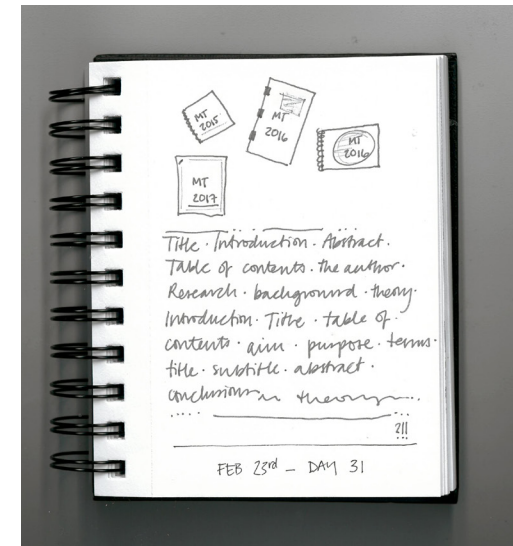 MT
2015
MT
2016
MT
2016
MT
2017
Title · Introduction · Abstract ·
Table of contents · the author ·
Research · background · theory ·
Introduction · Title · table of ·
contents · aim · purpose · terms ·
title · subtitle · abstract ·
conclusions theory
?!!
FEB 23rd — DAY 31